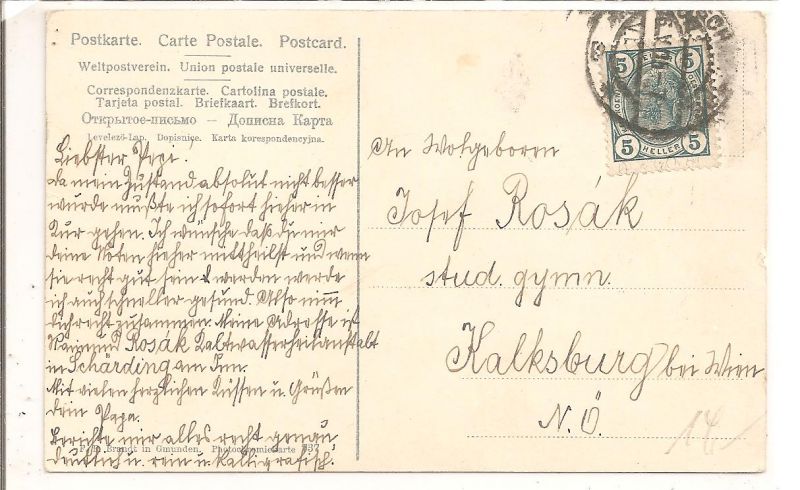 Postkarte. Carte Postale. Postcard.
Weltpostverein. Union postale universelle.
Correspondenzkarte. Cartolina postale.
Tarjeta postal. Briefkaart. Brefkort.
Открытое-письмо — Дописна Карта
Levelező-Lap. Dopisnice. Karta korespondencyjna.
Liebster Pepi.
Da mein Zustand absolut nicht besser
wurde mußte ich sofort hieher in
Kur gehen. Ich wünsche daß du mir
deine Noten hieher mittheilst und wenn
sie recht gut sein werden werde
ich auch schneller gesund. Also nimm
dich recht zusammen. Meine Adresse ist
Rosák Kaltwasserheilanstalt
in Schärding am Inn.
Mit vielen herzlichen Küssen u Grüßen
dein Papa.
Berichte mir alles recht genau,
deutlich u. rein u. kalligrafisch.
Brandt in Gmunden. Photochromiekarte 737
An Wolgeboren
Josef Rosák
stud. gymn.
Kalksburg bei Wien
N. Ö.
14
5 5
5 HELLER 5